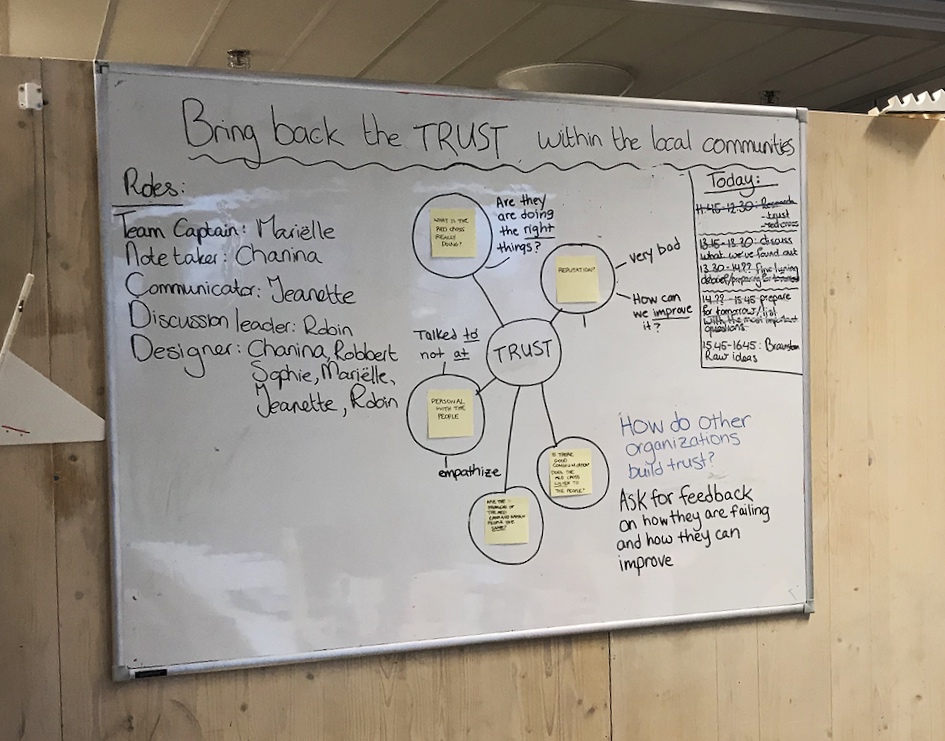 Bring back the TRUST within the local communities
Roles:
Team Captain: Mariëlle
Note taker: Chanina
Communicator: Jeanette
Discussion leader: Robin
Designer: Chanina, Robbert
Sophie, Mariëlle,
Jeanette, Robin
WHAT IS THE
RED CROSS
REALLY
DOING?
Are they
are doing
the right
things?
REPUTATION?
very bad
How can
we improve
it?
TRUST
Talked to
not at
PERSONAL
WITH THE
PEOPLE
empathize
IS THERE
GOOD
COMMUNICATION?
DOES THE
RED CROSS
LISTEN TO
THE PEOPLE?
ARE THE
OF
THE RED
PEOPLE THE
SAME?
Today:
11.45-12.30: Research
- trust
- red cross
13.15-13.30: discuss
what we've found out
13.30-14.?? Fine tuning
debrief/preparing for
14.??-15.45 prepare
for tomorrow/list
with the most important
questions
15.45-16.45: Brainstorm
Raw ideas
How do other
organizations
build trust?
Ask for feedback
on how they are failing
and how they can
improve